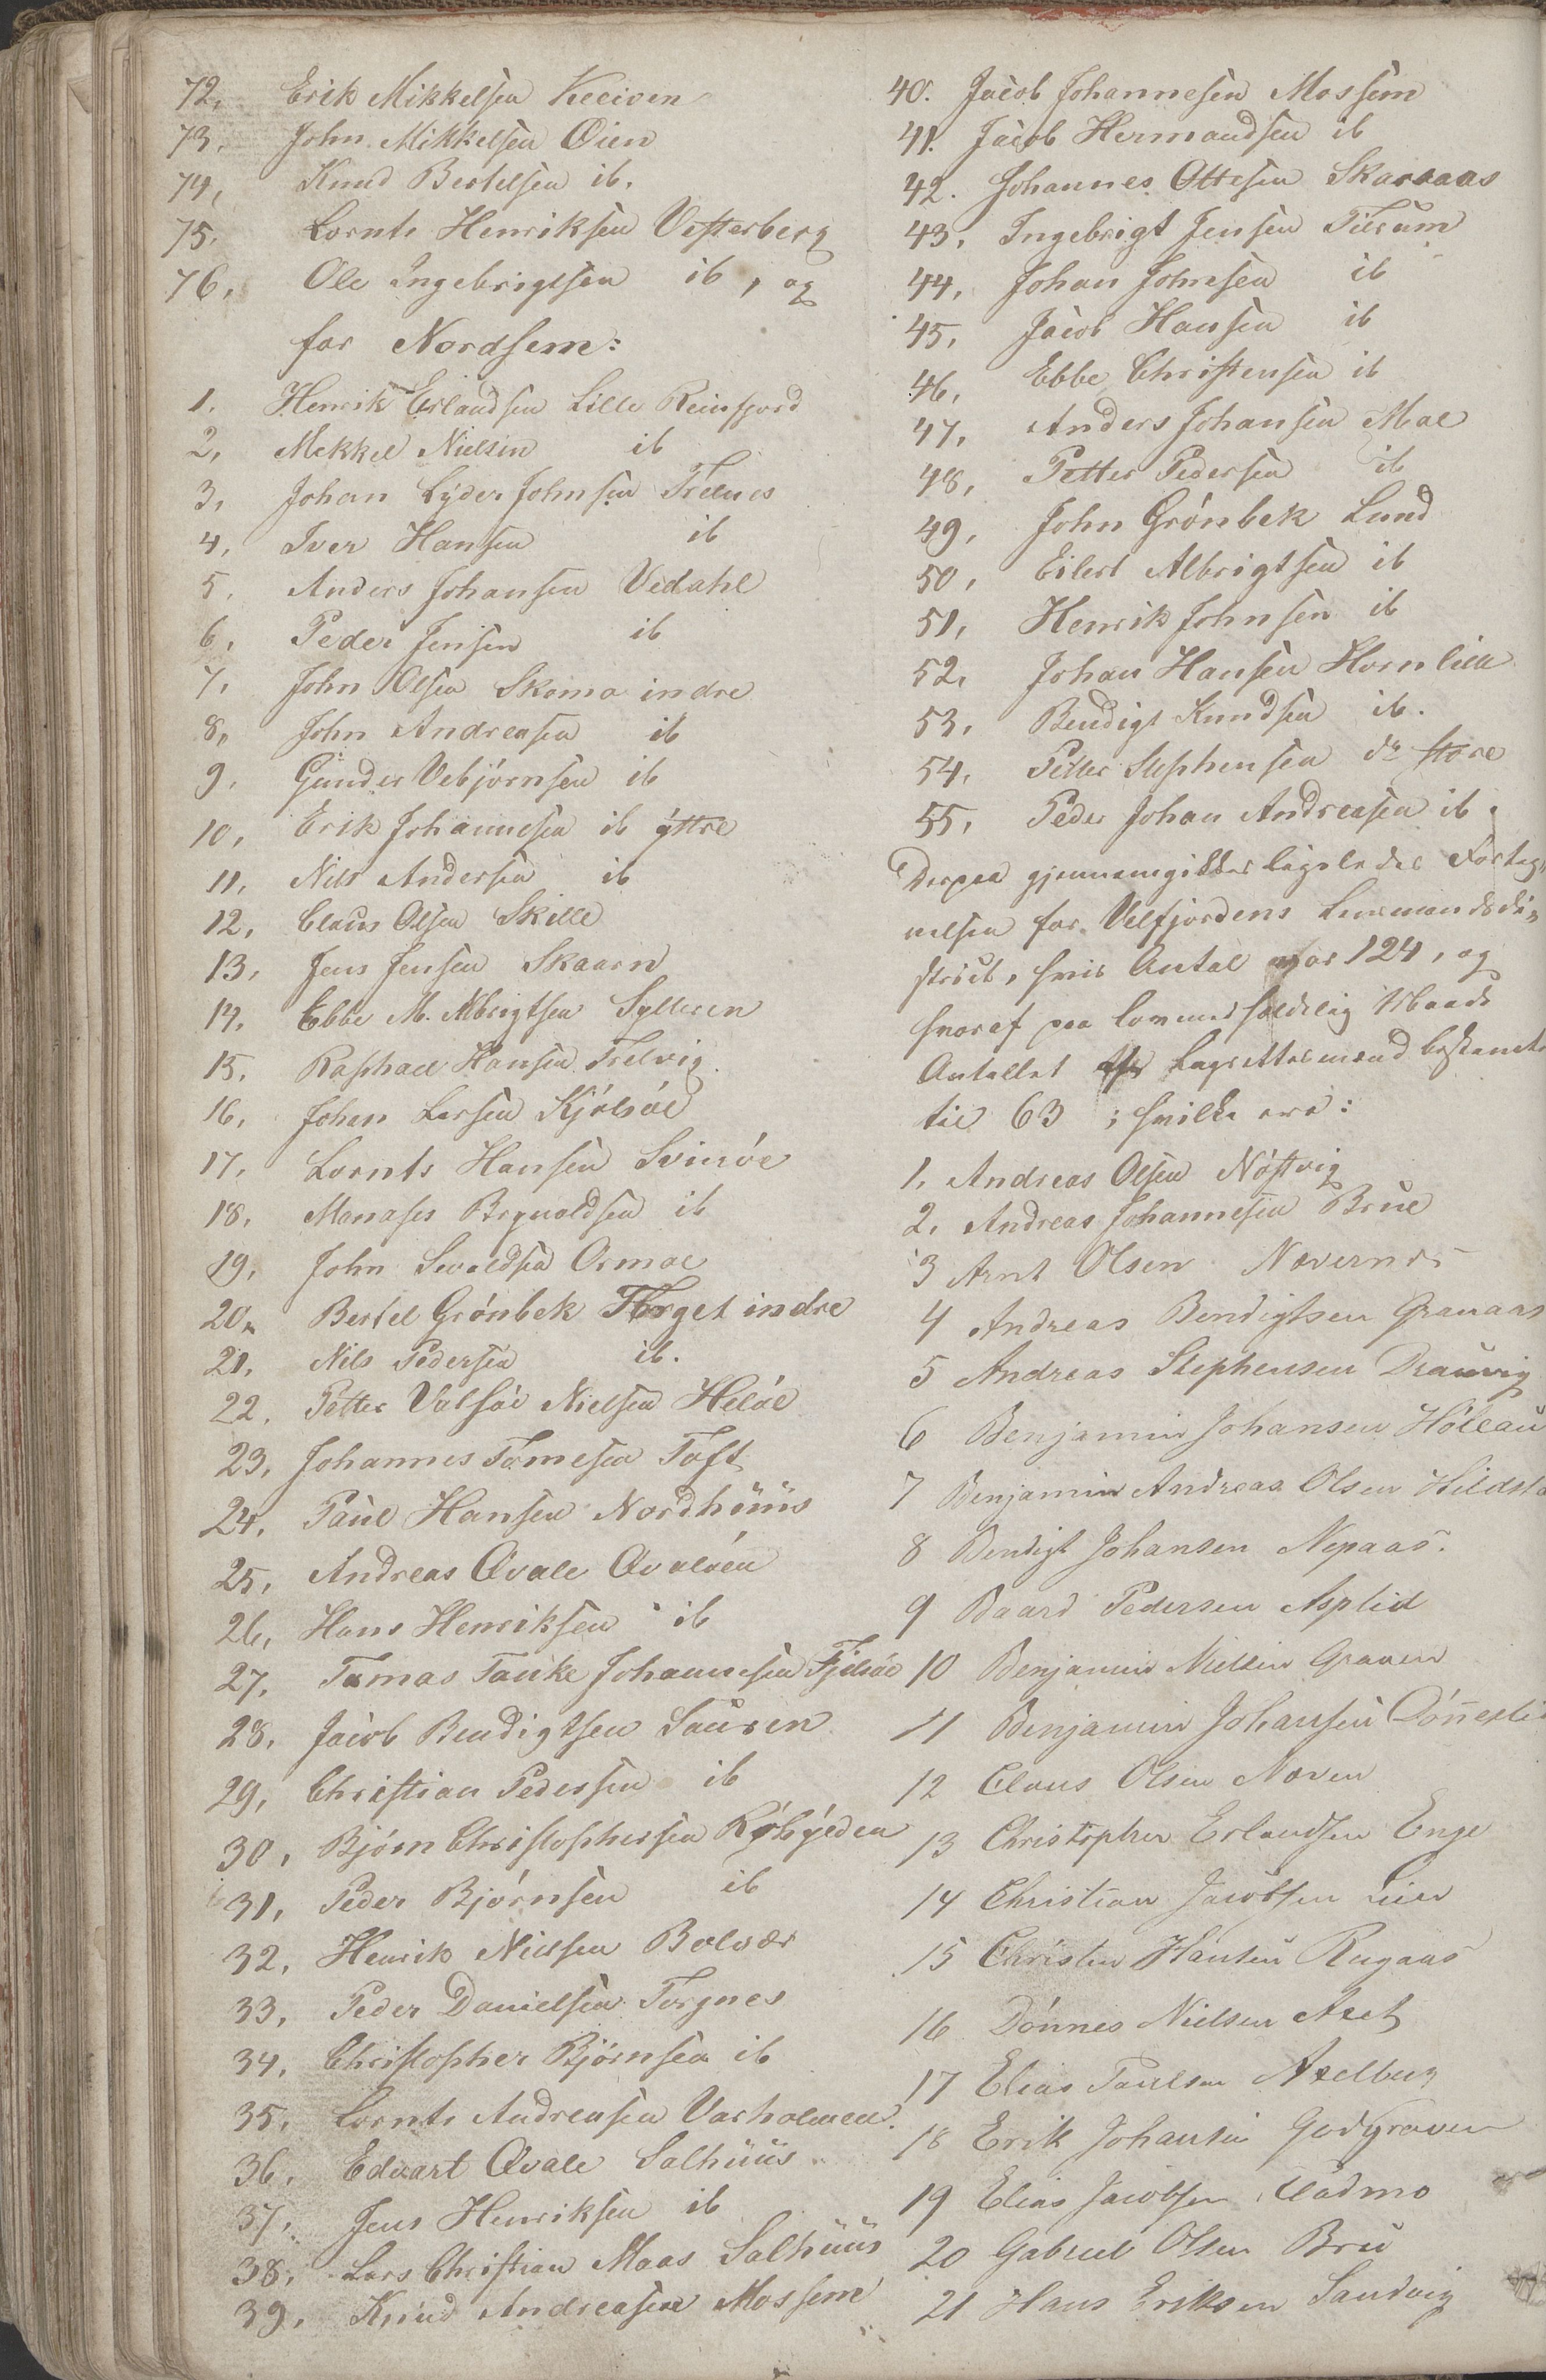 72, Erik Mikkelsen Kleiven
73, John Mikkelsen Øien
74, Knud Bertelsen ib.
75. Lornts Henriksen Vesterberg
76, Ole Ingebrigtsen ib, og
for Nordsem:
1. Henrik Erlandsen Lille Reinfjord
2, Mekkel Nielsen ib
3, Johan Lyder Johnsen Trelnes
4, Iver Hansen ib
5, Anders Johansen Vedahl
6, Peder Jensen ib
7, John Olsen Skomo indre
8, John Andreasen ib
9, Gunder Vebjørnsen ib
10, Erik Johannesen ib ÿttre
11, Nils Andersen ib
12, Claus Olsen Skille
13, Jens Jensen Skaarn
14, Ebbe M. Albrigtsen Sylteren
15, Raphael Hansen Trelvig
16, Johan Larsen Kjølsøe
17, Lornts Hansen Svinøe
18, Manases Brynoldsen ib
19, John Sevaldsen Ormøe
20, Bertel Grønbek Torget indre
21, Nils Pedersen ib.
22, Petter Valsøe Nielsen Heløe
23, Johannes Tomesen Toft
24, Paul Hansen Nordhuus
25, Andreas Qvale Qvaløen
26, Hans Henriksen ib
27, Tomas Tanke Johannesen Fjelsøe
28, Jacob Bendigtsen Sauren
29, Christian Pedersen ib
30, Bjørn Christophersen Røhÿeden
31, Peder Bjørnsen ib
32, Henrik Nielsen Bolvær
33, Peder Danielsen Torgnes
34, Christopher Bjørnsen ib
35, Lornts Andreasen Varholmen
36, Edvart Qvale Salhuus
37, Jens Henriksen ib
38, Lars Christian Maas Salhuus
39, Knud Andreasen Mossem
40. Jacob Johannesen Mossem
41. Jacob Hermandsen ib
42. Johannes Ottesen Skaraas
43, Ingebrigt Jensen Tilrum
44, Johan Johnsen ib
45, Jacob Hansen ib
46, Ebbe Christensen ib
47, Anders Johansen Moe
48, Petter Pedersen ib
49, John Grønbek Lund
50, Eilert Albrigtsen ib
51, Henrik Johnsen ib
52, Johan Hansen Horn lille
53, Bendigt Knudsen ib.
54, Petter Stephensen do store
55, Peder Johan Andreasen ib.
Derpaa gjennemgikkes ligeledes Forteg-
nelsen for Velfjordens Lensmandsdi-
strict, hvis Antal var 124, og
hvoraf paa lovmedholdelig Maade
Antallet af Lagrettesmænd bestemtes
til 63; hvilke ere:
1, Andreas Olsen Nøstvig
2, Andreas Johannesen Brue
3 Arnt Olsen Nævernes
4 Andreas Bendigtsen Granaas
5 Andreas Stephensen
6 Benjamin Johansen
7 Benjamin Andreas Olsen
8 Bendigt Johansen Nepaas
9 Baard Pedersen Asplid
10 Benjamin Nielsen Graven
11 Benjamin Johansen
12 Claus Olsen Noven
13 Christopher Erlandsen Enge
14 Christian Jacobsen Lien
15 Christen Hansen Rugaas
16 Dønnes Nielsen Axet
17 Elias Paulsen Axelberg
18 Erik Johansen Godgraven
19 Elias Jacobsen
20 Gabriel Olsen Bru
21 Hans Eriksen Sandvig